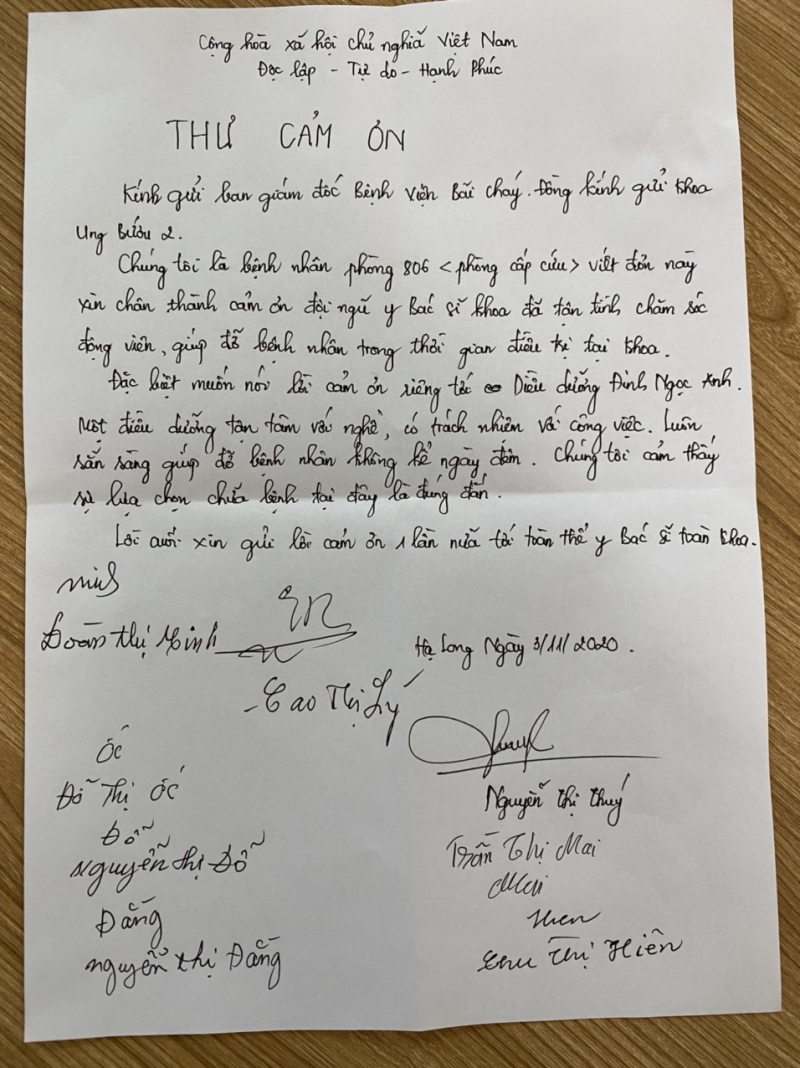 Cộng hòa xã hội chủ nghiã Việt Nam
Độc lập - Tự do - Hạnh Phúc
THƯ CẢM ƠN
Kính gửi ban giám đốc Bệnh Viện Bãi Cháy. Đồng kính gửi khoa
Ung Bướu 2.
Chúng tôi là bệnh nhân phòng 806 < phòng cấp cứu > viết đơn này
xin chân thành cảm ơn đội ngũ y Bác sĩ khoa đã tận tình chăm sóc
động viên, giúp đỡ bệnh nhân trong thời gian điều trị tại khoa.
Đặc biệt muốn nói lời cảm ơn riêng tới Điều dưỡng Đinh Ngọc Anh.
Một điều dưỡng tận tâm với nghề, có trách nhiên với công việc. Luôn
sẵn sàng giúp đỡ bệnh nhân không kể ngày đêm. Chúng tôi cảm thấy
sự lựa chọn chữa bệnh tại đây là đúng đắn.
Lời cuối xin gửi lời cảm ơn 1 lần nữa tới toàn thể y Bác sĩ toàn khoa.
Đoàn thị Minh
Hạ Long Ngày 3/11/2020.
- Cao Thị Lý
ốc
Đỗ Thị ốc
Nguyễn thị thúy
Đỗ
Nguyễn thị Đỗ
Trần Thị Mai
Mai
Đắng
Hien
nguyễn thị Đắng
Chu Thị Hiên